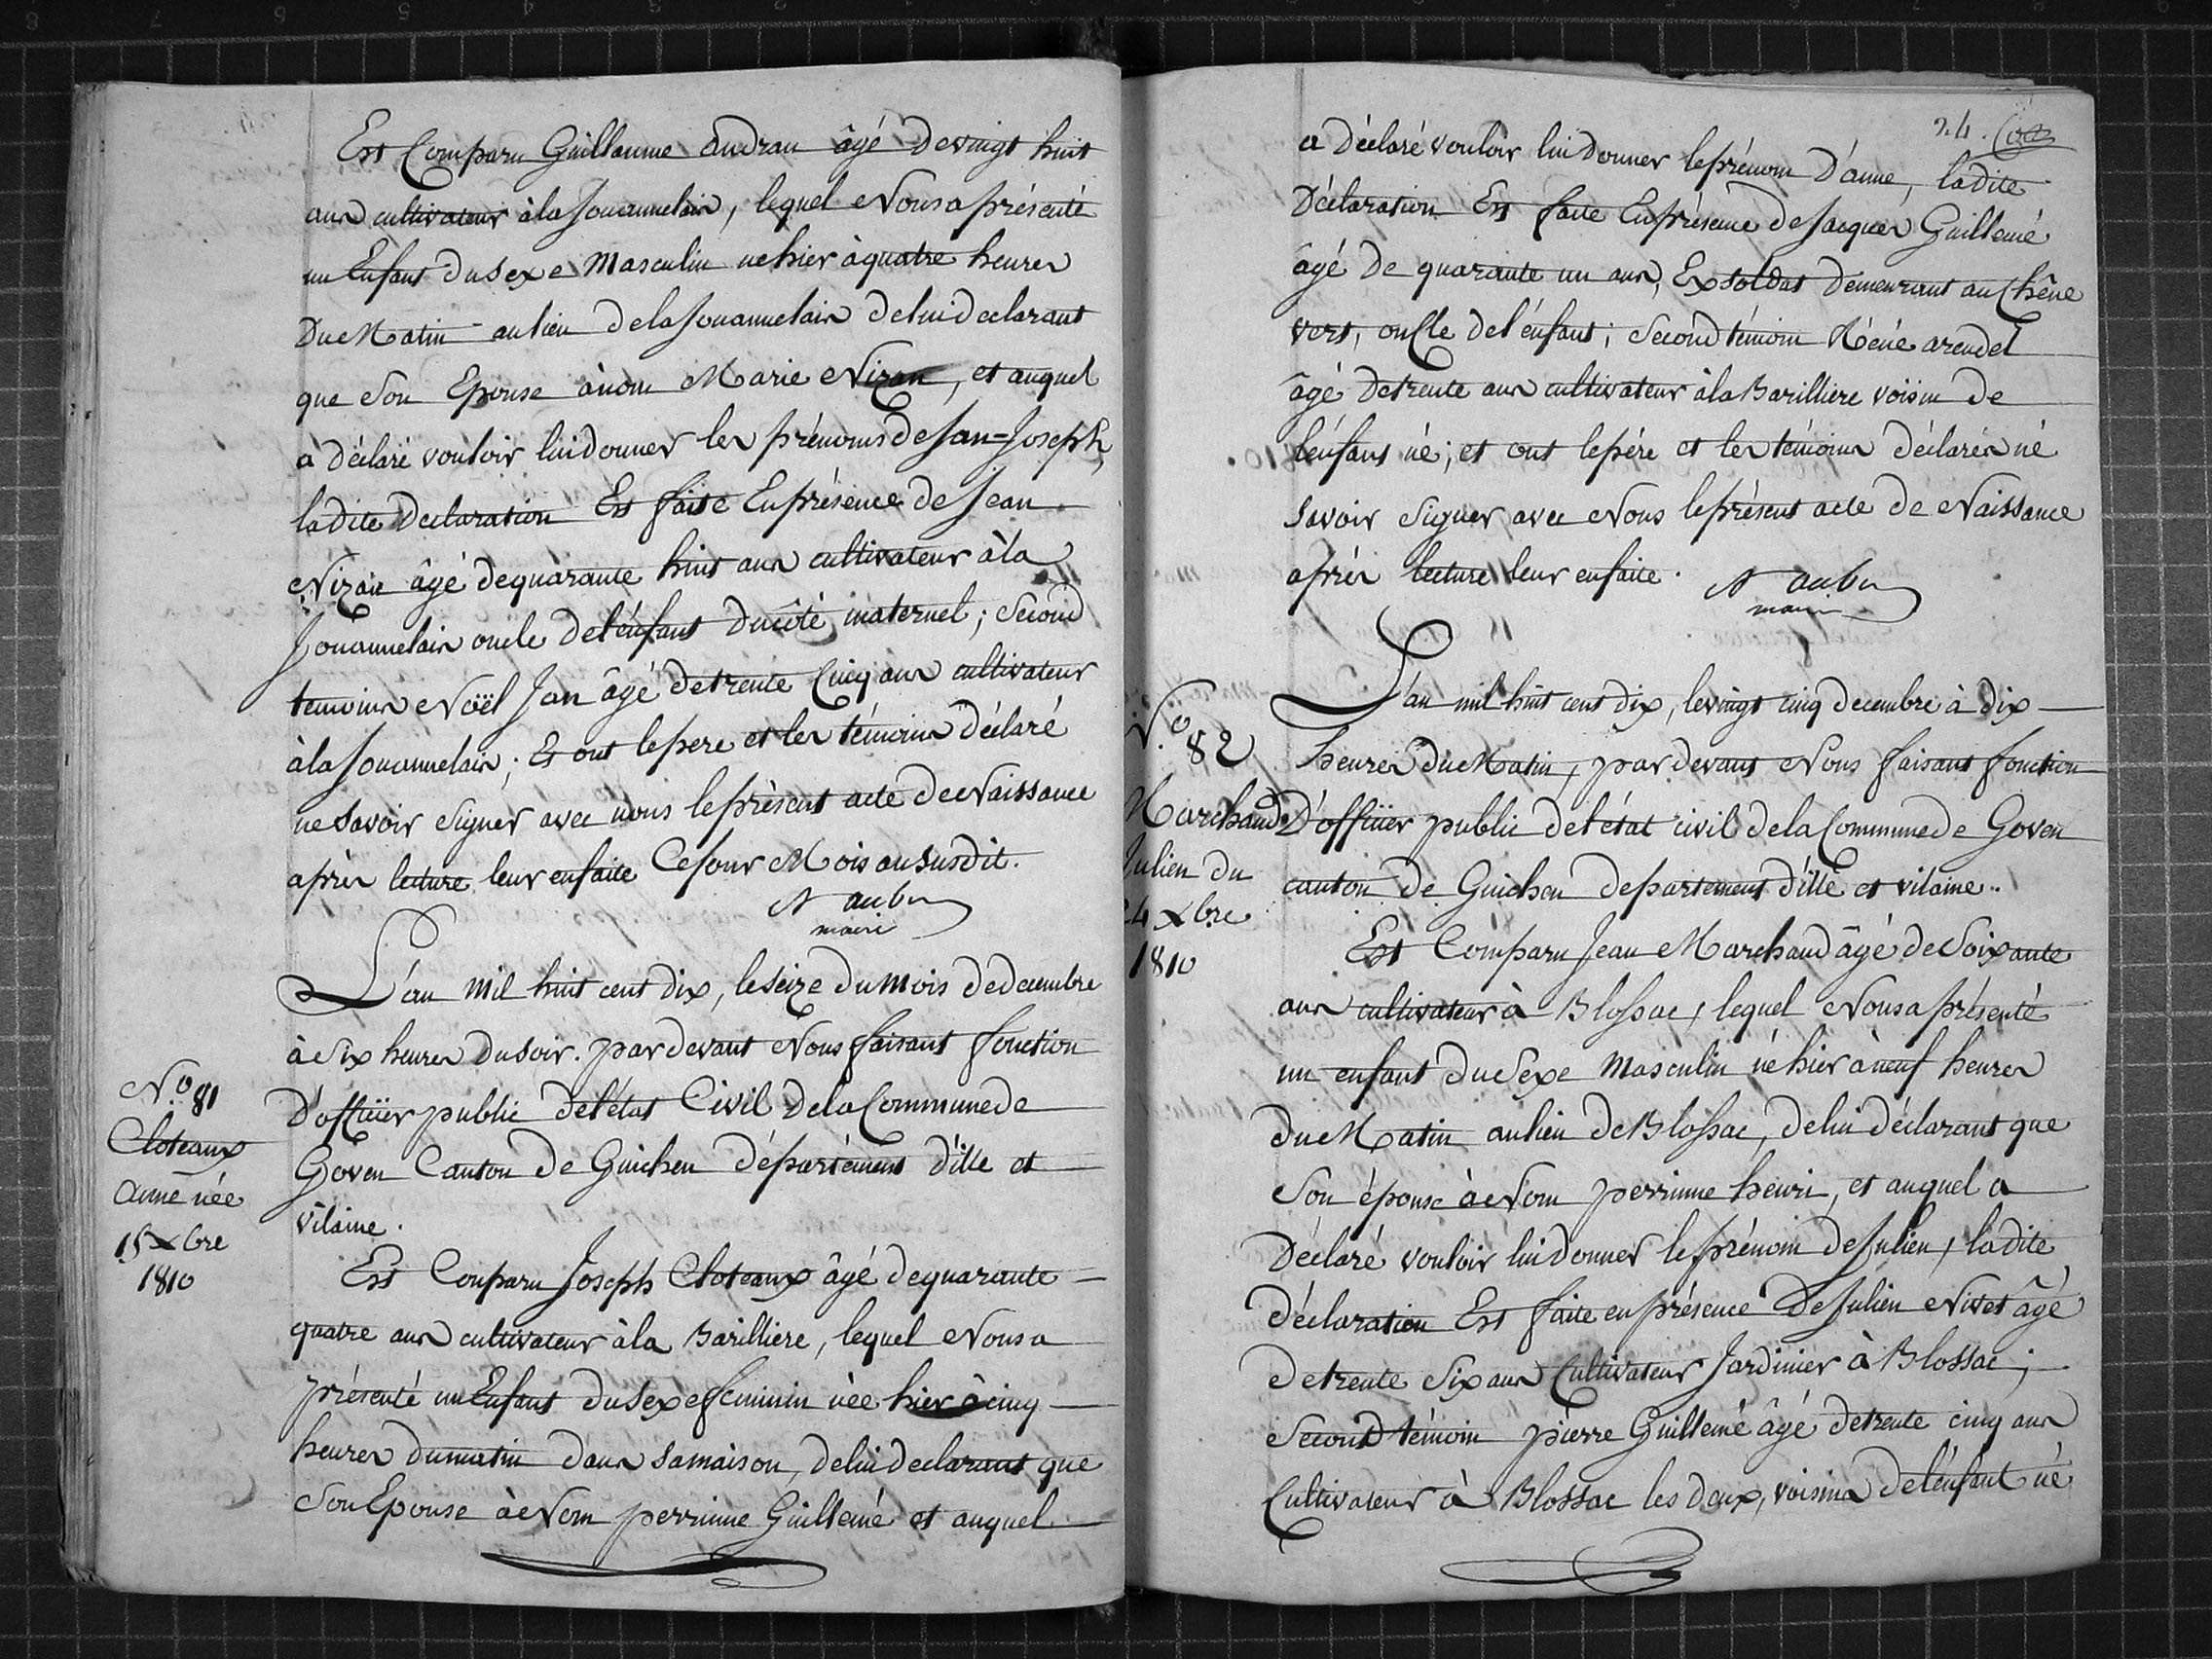 Est Comparu Guillaume Andran âgé de vingt huit
ans cultivateur à la Jouannelais, lequel Nous a présenté
un Enfant du Sexe Masculin né hier à quatre heures
Du Matin au lieu de la Jouannelais de lui declarant
que Son Epouse à nom Marie Nizan, et auquel
a déclaré vouloir lui donner les prénoms de Jan=Joseph,
ladite Declaration Est faite En présence de Jean
Nizan âgé de quarante huit ans cultivateur à la
Jouannelais oncle de l'énfant du côté maternel; Second
temoins Noël Jan âgé de trente Cinq ans cultivateur
à la Jouannelais; Et ont le pere et les témoins Déclaré
ne Savoir Signer avec nous le présent acte de Naissance
après lecture leur en faite Ce Jour Mois au Susdit.
N aubu
maire
L'an mil huit cent dix, le Seize Du Mois de decembre
à Six heures du Soir. par devant Nous faisant fonction
D'officier public de l'état Civil de la Commune de
Goven Canton de Guichen département d'ille et
vilaine.
N.o 81
Cloteaux
Anne née
15 Xbre
1810
Est Conparu Joseph Cloteaux âgé de quarante
quatre ans cultivateur à la Barilliere, lequel Nous a
présenté un Enfant du Sexe feminin née hier à cinq
heures du matin dans Sa maison, de lui declarant que
Son Epouse à Nom perrinne Guillemé et auquel
24.
a déclaré vouloir lui donner le prénom D'anne, ladite
Déclaration Est faite En présence de Jacques Guillemé
âgé de quarante un ans, Ex soldat demeurant au Chêne
vert, oncle de l'énfant; Second témoin Réné arendel
âgé de trente ans cultivateur à la Barilliere voisin de
l'énfant né; et ont le pére et les témoins déclarés né
Savoir Signer avec Nous le présent acte de Naissance
après lecture leur en faite.
N aubu
maire
L'an mil huit cent dix, le vingt cinq decembre à dix
heures du Matin, par devant Nous faisant fonction
D'officier public de l'état civil de la Commune de Goven
canton de Guichen departement d'ille et vilaine..
N.o 82
Marchand
Julien du
24 Xbre
1810
Est Comparu Jean Marchand âgé de Soixante
ans cultivateur à Blossac, lequel Nous a présenté
un enfant du Sexe Masculin né hier à neuf heures
du Matin au lieu de Blossac, de lui déclarant que
Son épouse à Nom perrinne henri, et auquel a
Déclaré vouloir lui donner le prénom de Julien, ladite
déclaration Est faite en présence de Julien Nivet âgé
de trente Six ans Cultivateur Jardinier à Blossac;
Second témoin pierre Guillemé âgé de trente cinq ans
Cultivateur à Blossac les deux, voisins de l'énfant né